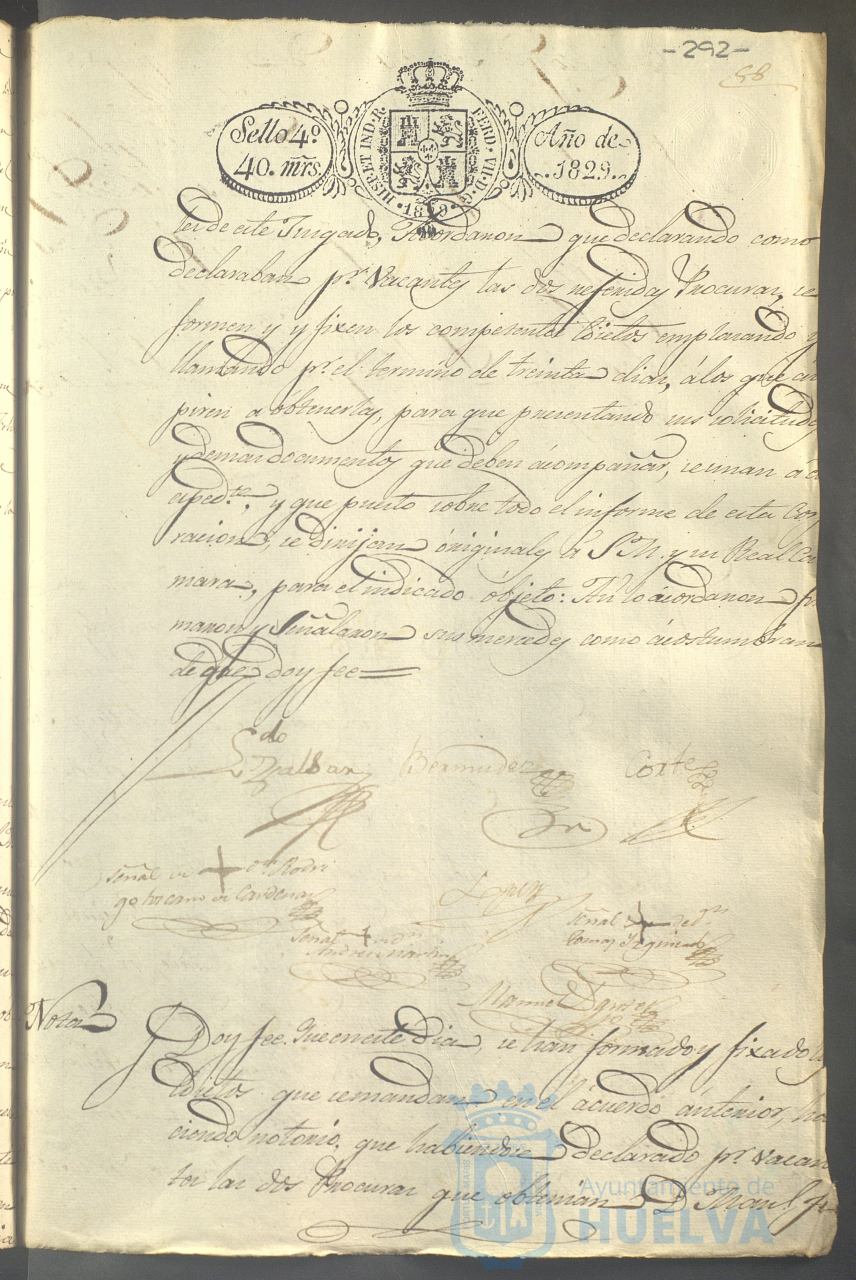 -292-
58
Sello 4º
40. mrs.
HISP. ET IND. R.
FERD. VII. D. G.
1829
Año de
1829.
tes de este Juzgado, Acordaron que declarando como
declaraban pr. Vacantes las dos referidas Procuras, se
formen y y fixen los competentes Edictos emplazando y
llamando pr. el termino de treinta dias, á los que as
piren a obtenerlas, para que presentando sus solicitudes
y demas documentos que deben ácompañar, se unan a
expedte. y que puesto sobre todo el informe de esta Corpo
racion, se dirijan originales á S. M. y su Real Ca
mara, para el indicado objeto: Asi lo ácordaron fir
maron y Señalaron sus mercedes como ácostumbran
de que doy fee=
Ldo
Zalbar
Bermudez
Cortes
Señal de + Dn. Rodri
go toscano de Cardenas
Lopez
Señal + de Dn.
Tomas Yzquierdo
Señal + de Dn.
Andres Martin
Manuel
Nota
Doy fee: Que en este dia, se han formado y fixado los
Edictos que se mandan en el ácuerdo ánterior, ha
ciendo notorio, que habiendose declarado pr. vacan
tes las dos Procuras que obtenian D. Manl.
Ayuntamiento de
HUELVA